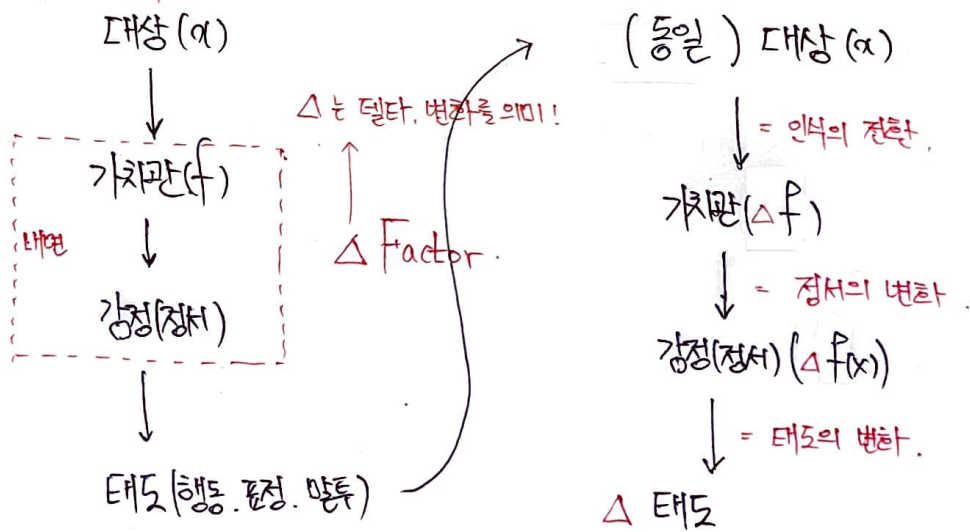 대상(x)
가치관(f)
내면
감정(정서)
태도(행동.표정.말투)
△는 델타, 변화를 의미!
△ Factor.
(동일) 대상(x)
= 인식의 전환.
가치관(△f)
= 정서의 변화.
감정(정서)(△f(x))
= 태도의 변화.
△ 태도